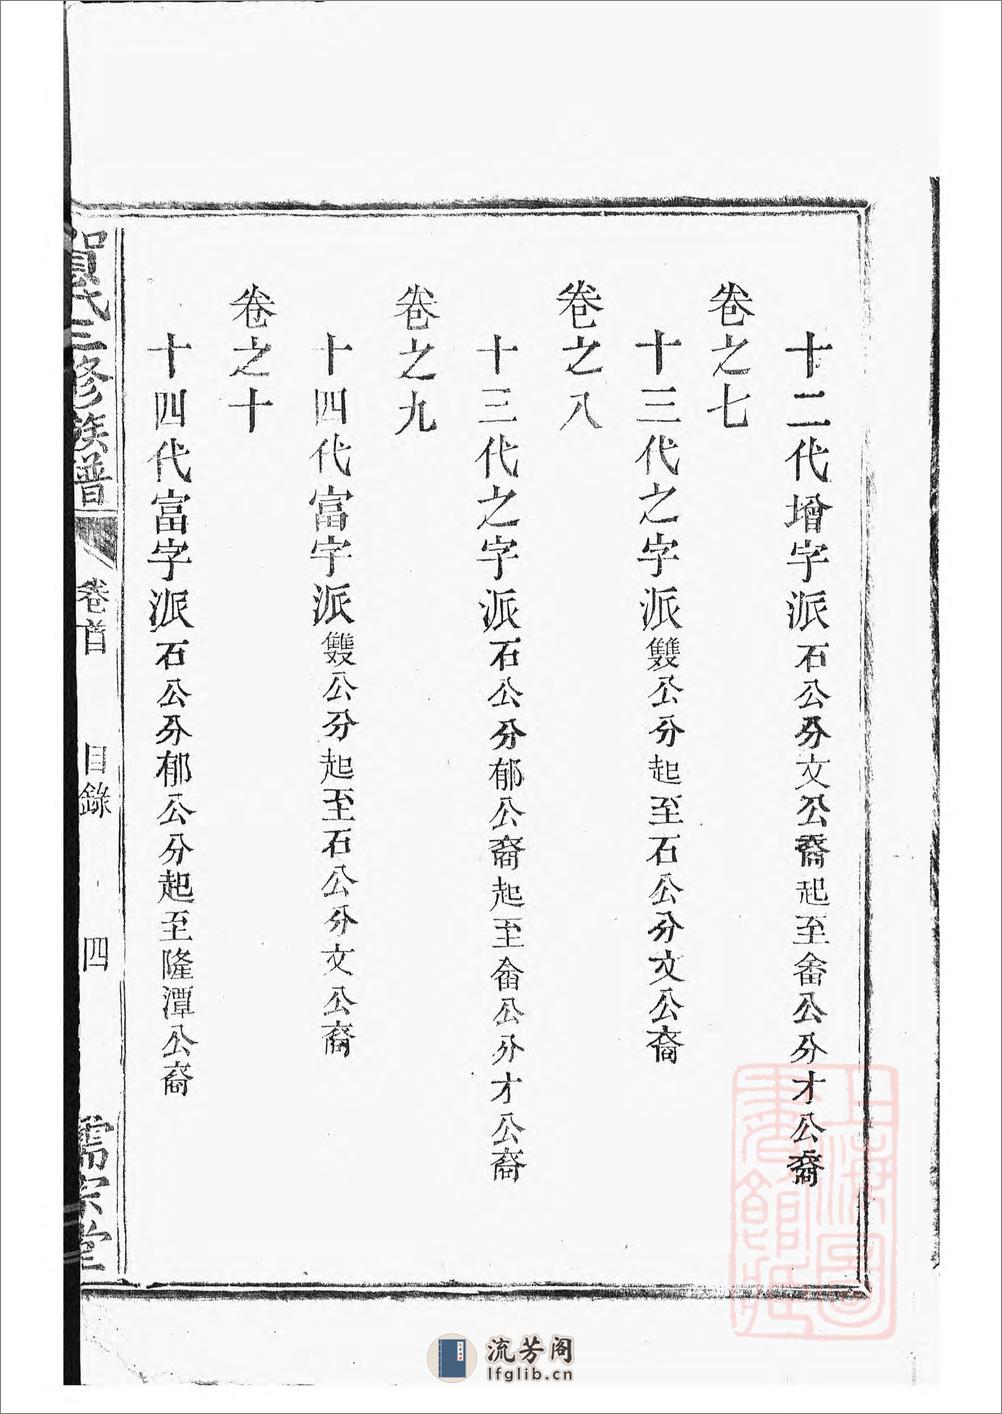 十二代增字派石公分文公裔起至畬公分才公裔
卷之七
十三代之字派雙公分起至石公分文公裔
卷之八
十三代之字派石公分郁公裔起至畬公分才公裔
卷之九
十四代富字派雙公分起至石公分文公裔
卷之十
十四代富字派石公分郁公分起至隆潭公裔
賀氏三修族譜 卷首 目錄 四 儒宗堂
上海圖書館藏
流芳阁
lfglib.cn